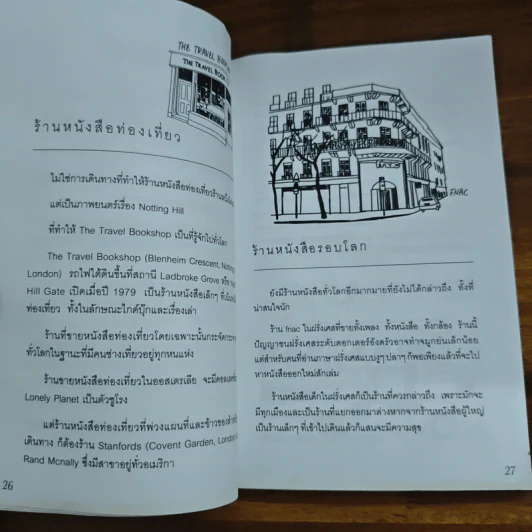 THE TRAVEL BOOK
THE TRAVEL BOOK
ร้านหนังสือท่องเที่ยว
ไม่ใช่การเดินทางที่ทำให้ร้านหนังสือท่องเที่ยวร้านหนึ่ง
แต่เป็นภาพยนตร์เรื่อง Notting Hill
ที่ทำให้ The Travel Bookshop เป็นที่รู้จักไปทั่วโลก
The Travel Bookshop (Blenheim Crescent, Notting
London) รถไฟใต้ดินขึ้นที่สถานี Ladbroke Grove หรือ
Hill Gate เปิดเมื่อปี 1979 เป็นร้านหนังสือเล็กๆ ที่
ท่องเที่ยว ทั้งในลักษณะไกด์บุ๊กและเรื่องเล่า
ร้านที่ขายหนังสือท่องเที่ยวโดยเฉพาะนั้นกระจัดกระ
ทั่วโลกในฐานะที่มีคนช่างเที่ยวอยู่ทุกหนแห่ง
ร้านขายหนังสือท่องเที่ยวในออสเตรเลีย จะมี
Lonely Planet เป็นตัวชูโรง
แต่ร้านหนังสือท่องเที่ยวที่พ่วงแผนที่และข้าวของสำหรับ
เดินทาง ก็ต้องร้าน Stanfords (Covent Garden, London
Rand Mcnally ซึ่งมีสาขาอยู่ทั่วอเมริกา
26
FNAC
FNAC
ร้านหนังสือรอบโลก
ยังมีร้านหนังสือทั่วโลกอีกมากมายที่ยังไม่ได้กล่าวถึง ทั้งที่
น่าสนใจนัก
ร้าน fnac ในฝรั่งเศสที่ขายทั้งเพลง ทั้งหนังสือ ทั้งกล้อง ร้านนี้
ปัญญาชนฝรั่งเศสระดับดอกเตอร์อังตัวอาจทำจมูกย่นเล็กน้อย
แต่สำหรับคนที่อ่านภาษาฝรั่งเศสแบบงูๆ ปลาๆ ก็พอเพียงแล้วที่จะไป
หาหนังสือออกใหม่สักเล่ม
ร้านหนังสือเด็กในฝรั่งเศสก็เป็นร้านที่ควรกล่าวถึง เพราะมักจะ
มีทุกเมืองและเป็นร้านที่แยกออกมาต่างหากจากร้านหนังสือผู้ใหญ่
เป็นร้านเล็กๆ ที่เข้าไปเดินแล้วก็แสนจะมีความสุข
27